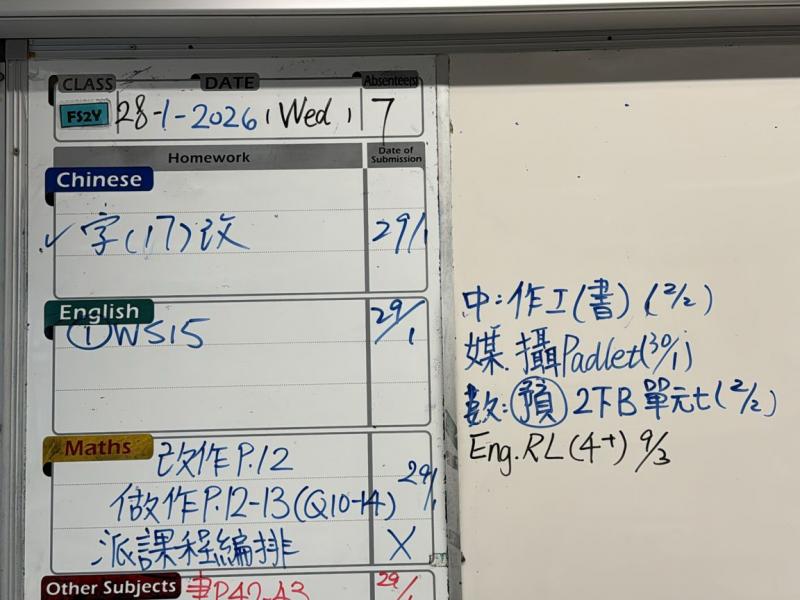 CLASS DATE Absentee(s)
FS2Y 28-1-2026, Wed, 7
Homework Date of Submission
Chinese
✓ 字(17)改 29/1
English
①WS15 29/1
Maths 改作P.12
做作P.12-13(Q10-14) 29/1
派課程編排 X
Other Subjects 書P42-43 29/1
中:作工(書) (2/2)
媒. 攝Padlet(30/1)
數:預 2下B單元七(2/2)
Eng. RL(4+) 9/3